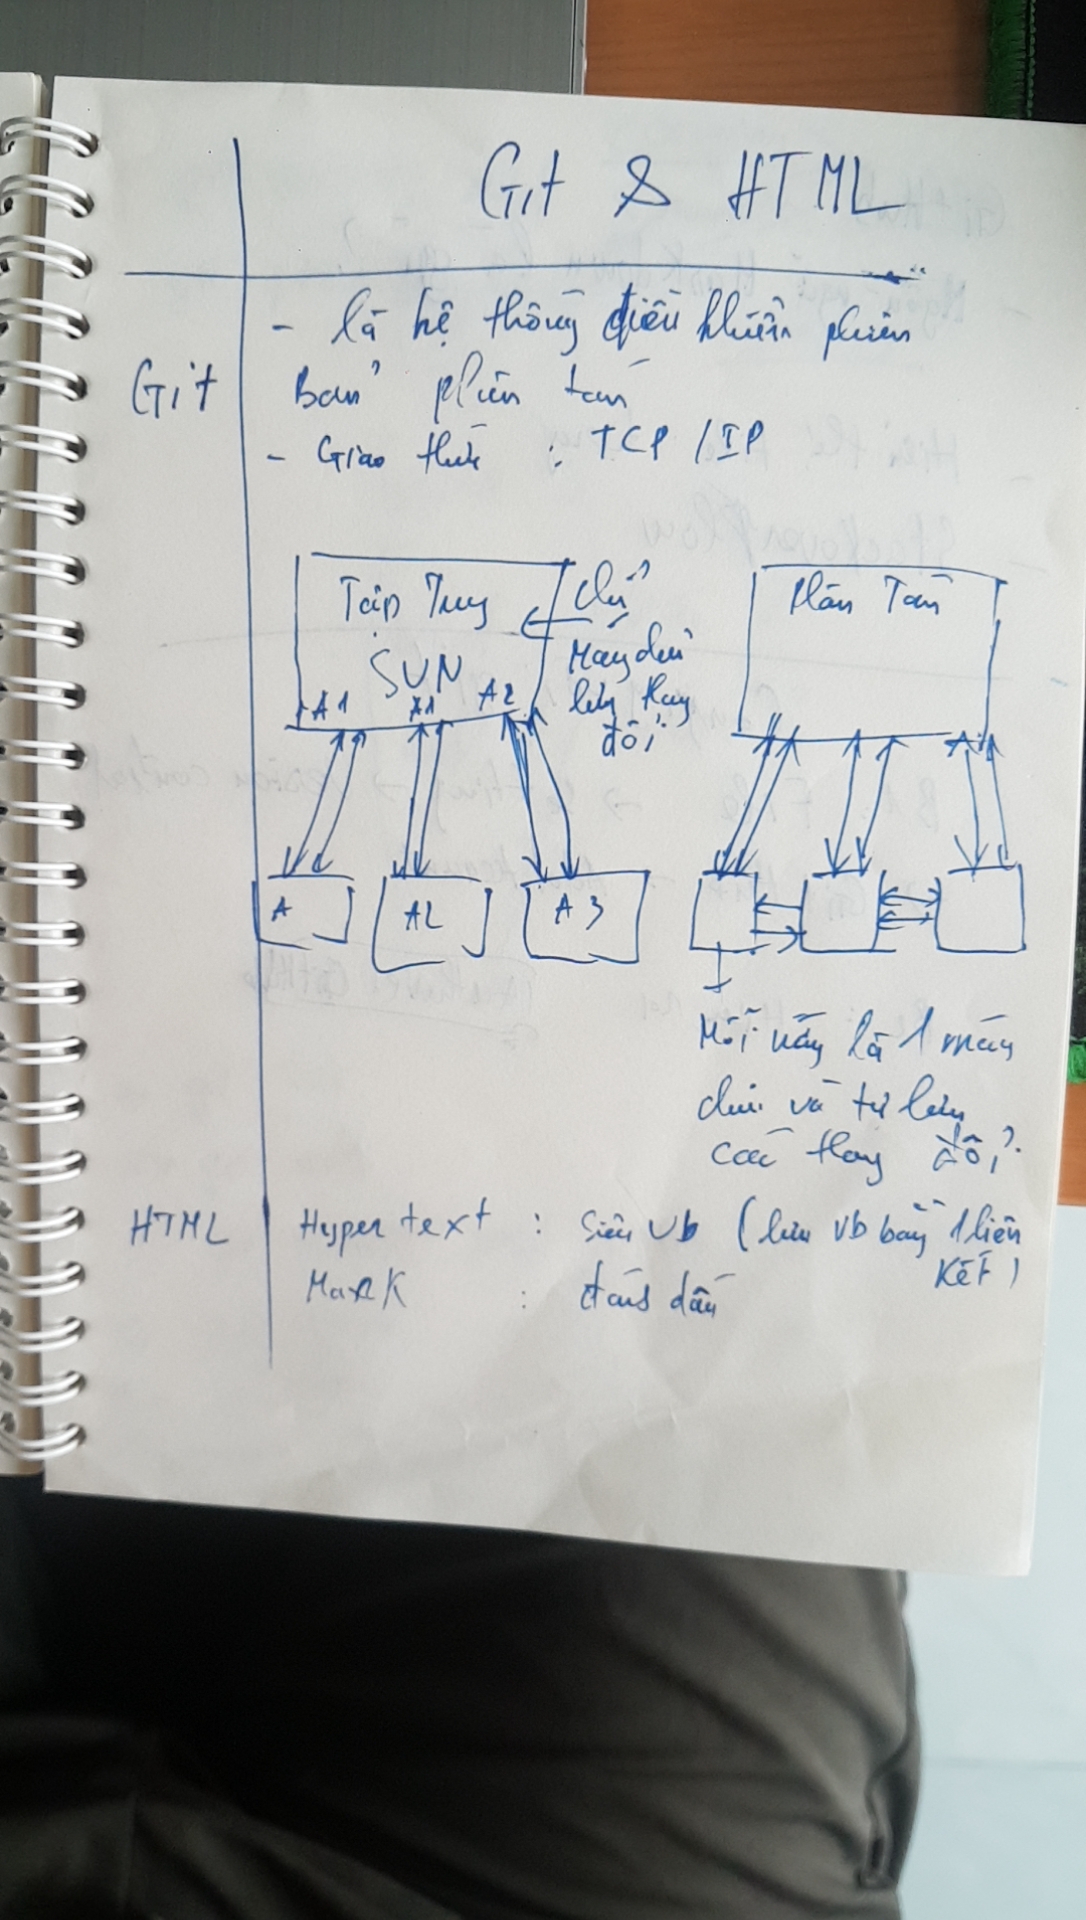 Git & HTML
- là hệ thống điều khiển phiên
Git
Bản phân tán
- Giao thức : TCP / IP
Tập Trung
SVN
A1 A1 A2
Chỉ
Máy chủ
lưu thay
đổi
Phân Tán
A
A2
A3
Mỗi máy là 1 máy
chủ và tự lưu
các thay đổi
HTML
Hyper text : Siêu Vb (lưu Vb bằng 1 liên
kết)
Mark : đánh dấu